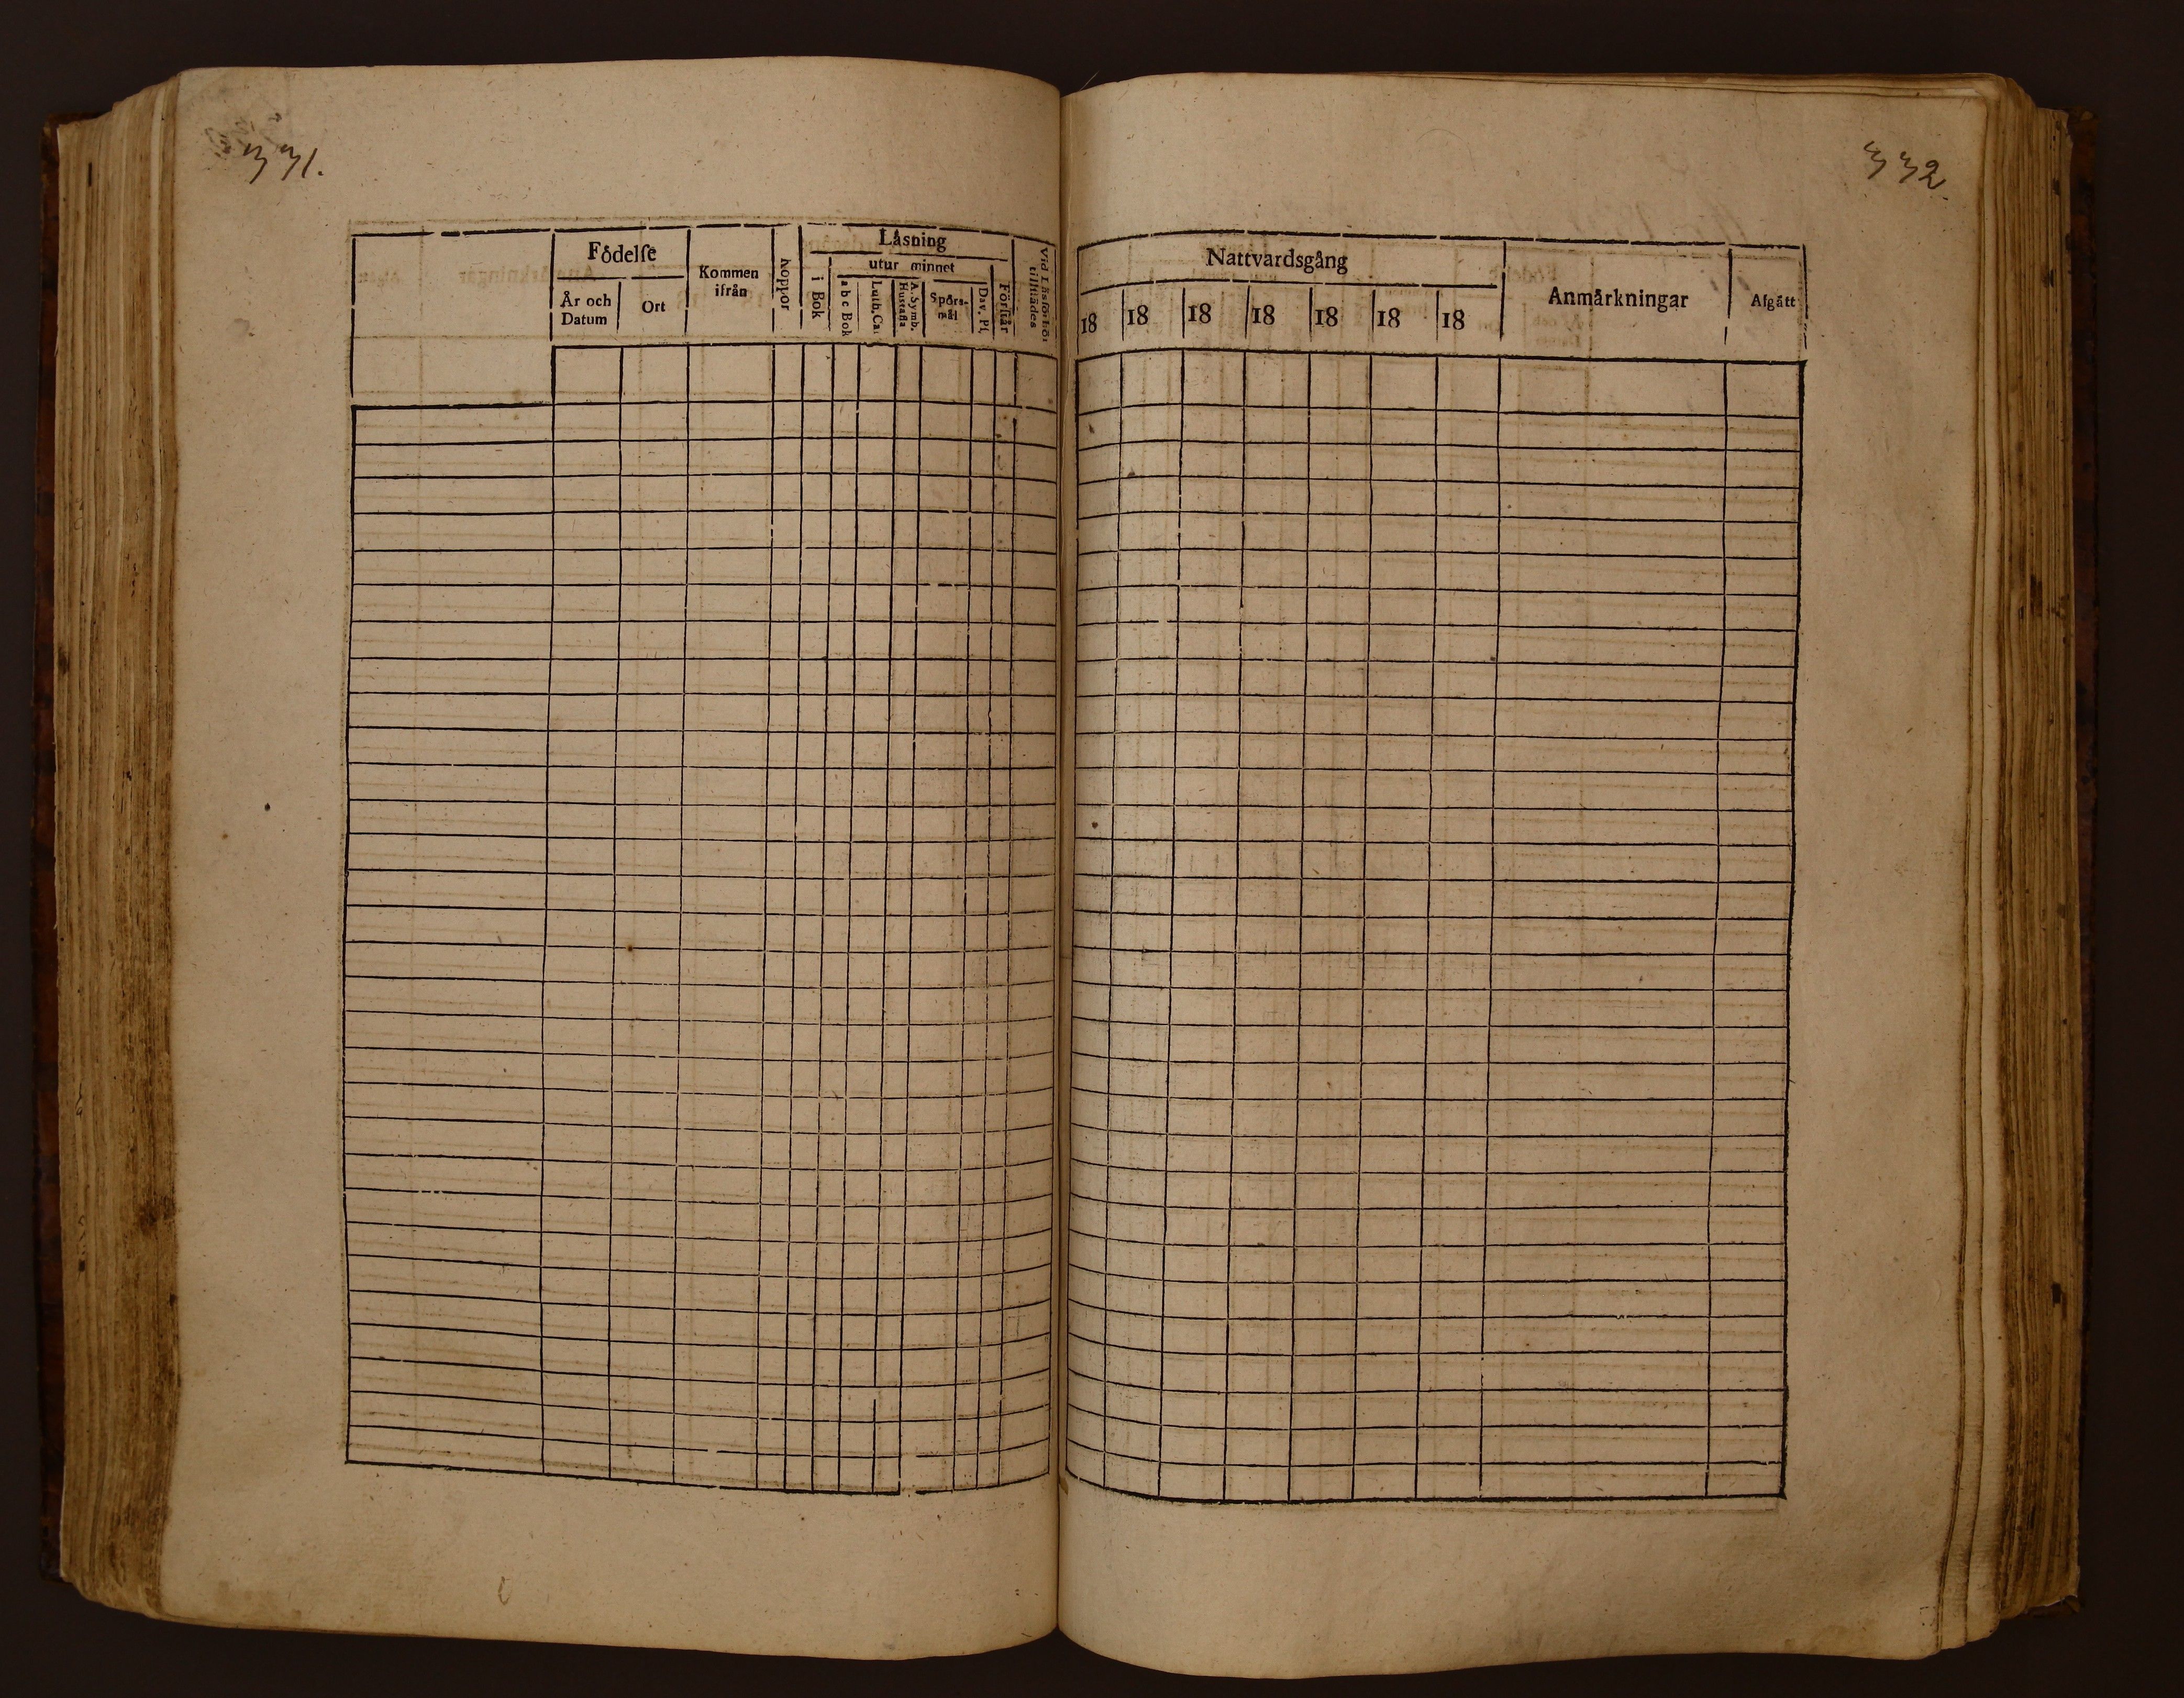 331.
Födelſe
År och Datum
Ort
Kommen ifrån
Koppor
Läsning
i Bok
utur minnet
a b c Bok
Luth. Cat.
A. Symb. Hustafla
Spörsmål
Dav. Ps.
Förſtår
Vid Läsförhör tillſtädes
332.
Nattvardsgång
18 18 18 18 18 18 18
Anmärkningar
Afgått